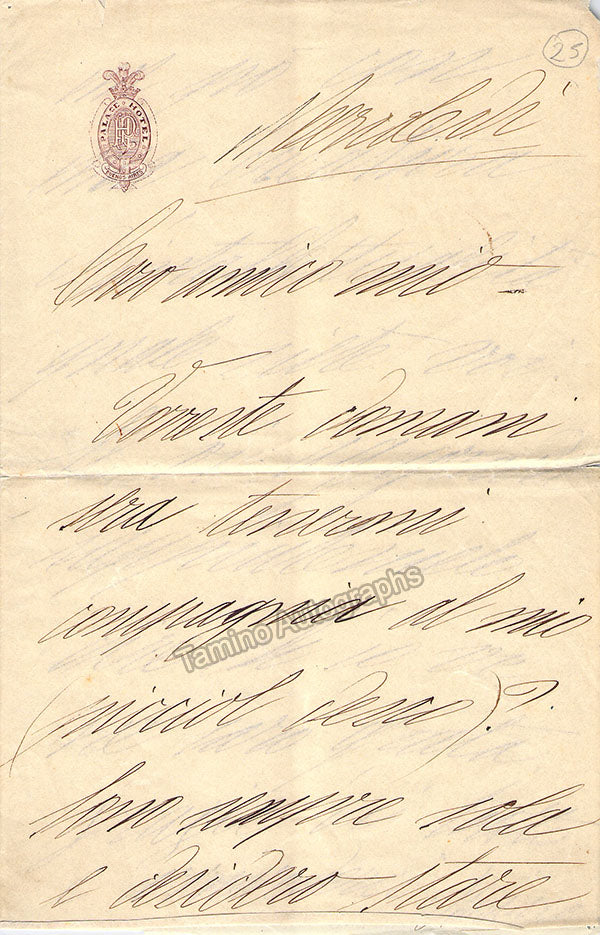 25
PALACE HOTEL
BUENOS AIRES
Mercoledì
Caro amico mio –
Vorreste domani
sera tenermi
compagnia al mio
(picciol desco)?
Sono sempre sola
e desidero stare
Tamino Autographs